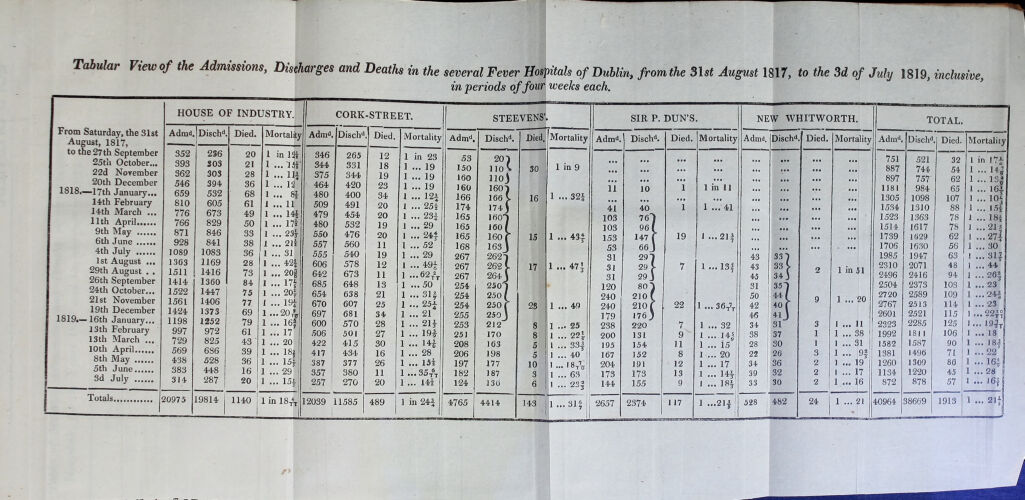 Tabular View of the Admissions, Discharges and Deaths in the several Fever Hospitals of Dublin, from the 31st August 1817, to the 3d of July 1819, inclusive,
in periods of four weeks each.
HOUSE OF INDUSTRY. CORK-STREET. STEEVENS'. SIR P. DUN'S. NEW WHITWORTH. TOTAL.
From Saturday, the 31st August, 1817, Admd. Dischd. Died. Mortality Admd. Dischd. Died. Mortality Admd. Dischd. Died. Mortality Admd. Dischd. Died. Mortality Admd. Dischd. Died. Mortality Admd. Dischd. Died. Mortality
to the 27th September 352 236 20 1 in 346 265 12 1 in 23 53 20 ... ... ... ... ... ... ... ... 751 521 32 1 in
25th October... 393 303 21 1 ... 344 331 18 1 ... 19 150 110 30 1 in 9 ... ... ... ... ... ... ... ... 887 744 54 1 ...
22d November 362 303 28 1 ... 375 344 19 1 ... 19 160 110 ... ... ... ... ... ... ... ... 897 757 62 1 ...
20th December 546 394 36 1 ... 12 464 420 23 1 ... 19 160 160 11 10 1 1 in 11 ... ... ... ... 1181 984 65 1 ...
1818.—17th January... 659 532 68 1 ... 480 400 34 1 ... 166 166 16 1 ... ... ... ... ... ... ... ... ... 1305 1098 107 1 ...
14th February 810 605 61 1 ... 11 509 491 20 1 ... 174 174 41 40 1 1 ... 41 ... ... ... ... 1534 1310 88 1 ...
14th March ... 776 673 49 1 ... 479 454 20 1 ... 165 160 103 76 ... ... ... ... 1523 1363 78 1 ...
11th April...... 766 829 50 1 ... 480 532 19 1 ... 29 165 160 103 96 ... ... ... ... 1514 1617 78 1 ...
9th May ...... 871 846 33 1 ... 550 476 20 1 ... 165 160 15 1 ... 153 147 19 1 ... ... ... ... ... 1739 1629 62 1 ...
6th June ...... 928 841 38 1 ... 557 560 11 1 ... 52 168 163 53 66 ... ... ... ... 1706 1630 56 1 ... 30
4th July ...... 1089 1083 36 1 ... 31 555 540 19 1 ... 29 267 262 31 29 43 33 1985 1947 63 1 ...
1st August ... 1363 1169 28 1 ... 606 578 12 1 ... 267 262 17 1 ... 31 29 7 1 ... 43 33 2 1 in 51 2310 2071 48 1 ... 44
29th August .. 1511 1416 73 1 ... 642 673 11 1 ... 267 264 31 29 45 34 2496 2416 94 1 ...
26th September 1414 1360 84 1 ... 685 648 13 1 ... 50 254 250 120 80 31 35 2504 2373 103 1 ... 23
24th October... 1522 1447 75 1 ... 654 638 21 1 ... 254 250 240 210 50 44 2720 2589 109 1 ...
21st November 1561 1406 77 1 ... 670 607 25 1 ... 254 250 23 1 ... 49 240 210 22 1 ... 42 40 9 1 ... 20 2767 2513 114 1 ... 23
19th December 1424 1373 69 1 ... 697 681 34 1 ... 21 255 250 179 176 46 41 2601 2521 115 1 ...
1819.—16th January... 1198 1252 79 1 ... 600 570 28 1 ... 253 212 8 1 ... 25 238 220 7 1 ... 32 34 31 3 1 ... 11 2323 2285 125 1 ...
13th February 997 972 61 1 ... 17 506 501 27 1 ... 251 170 8 1 ... 200 131 9 1 ... 38 37 1 1 ... 38 1992 1811 106 1 ... 18
13th March ... 729 825 43 1 ... 20 422 415 30 1 ... 208 163 5 1 ... 195 154 11 1 ... 15 28 30 1 1 ... 31 1582 1587 90 1 ...
10th April...... 569 686 39 1 ... 417 434 16 1 ... 28 206 198 5 1 ... 40 167 152 8 1 ... 20 22 26 3 1 ... 1381 1496 71 1 ... 22
8th May ...... 438 528 36 1 ... 387 377 26 1 ... 197 177 10 1 ... 204 191 12 1 ... 17 34 36 2 1 ... 19 1260 1309 86 1 ...
5th June ...... 383 448 16 1 ... 29 357 380 11 1 ... 182 187 3 1 ... 63 173 173 13 1 ... 39 32 2 1 ... 17 1134 1220 45 1 ... 28
3d July ...... 314 287 20 1 ... 257 270 20 1 ... 124 136 6 1 ... 144 155 9 1 ... 33 30 2 1 ... 16 872 878 57 1 ...
Totals............ 20975 19814 1140 1 in 12039 11585 489 1 in 4765 4414 143 1 ... 2657 2374 117 1 ... 528 482 24 1 ... 21 40964 38669 1913 1 ...